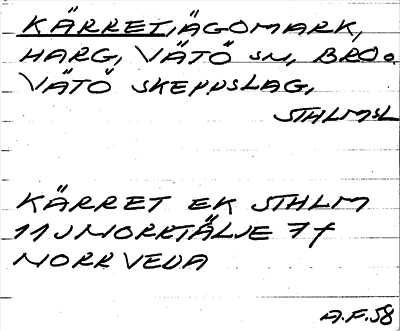 KÄRRET, ÄGOMARK,
HARG, VÄTÖ SN, BRO o.
VÄTÖ SKEPPSLAG,
STHLMSL
KÄRRET EK STHLM
11J NORRTÄLJE 7f
NORRVEDA
A.F. 58